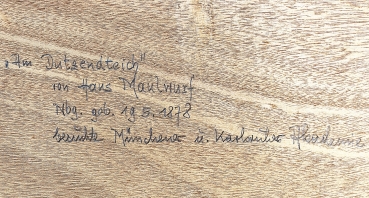 „Am Dutzendteich"
von Hans Maulwurf
Nbg. geb. 19 5. 1878
besuchte Münchener u. Karlsruher Akademie